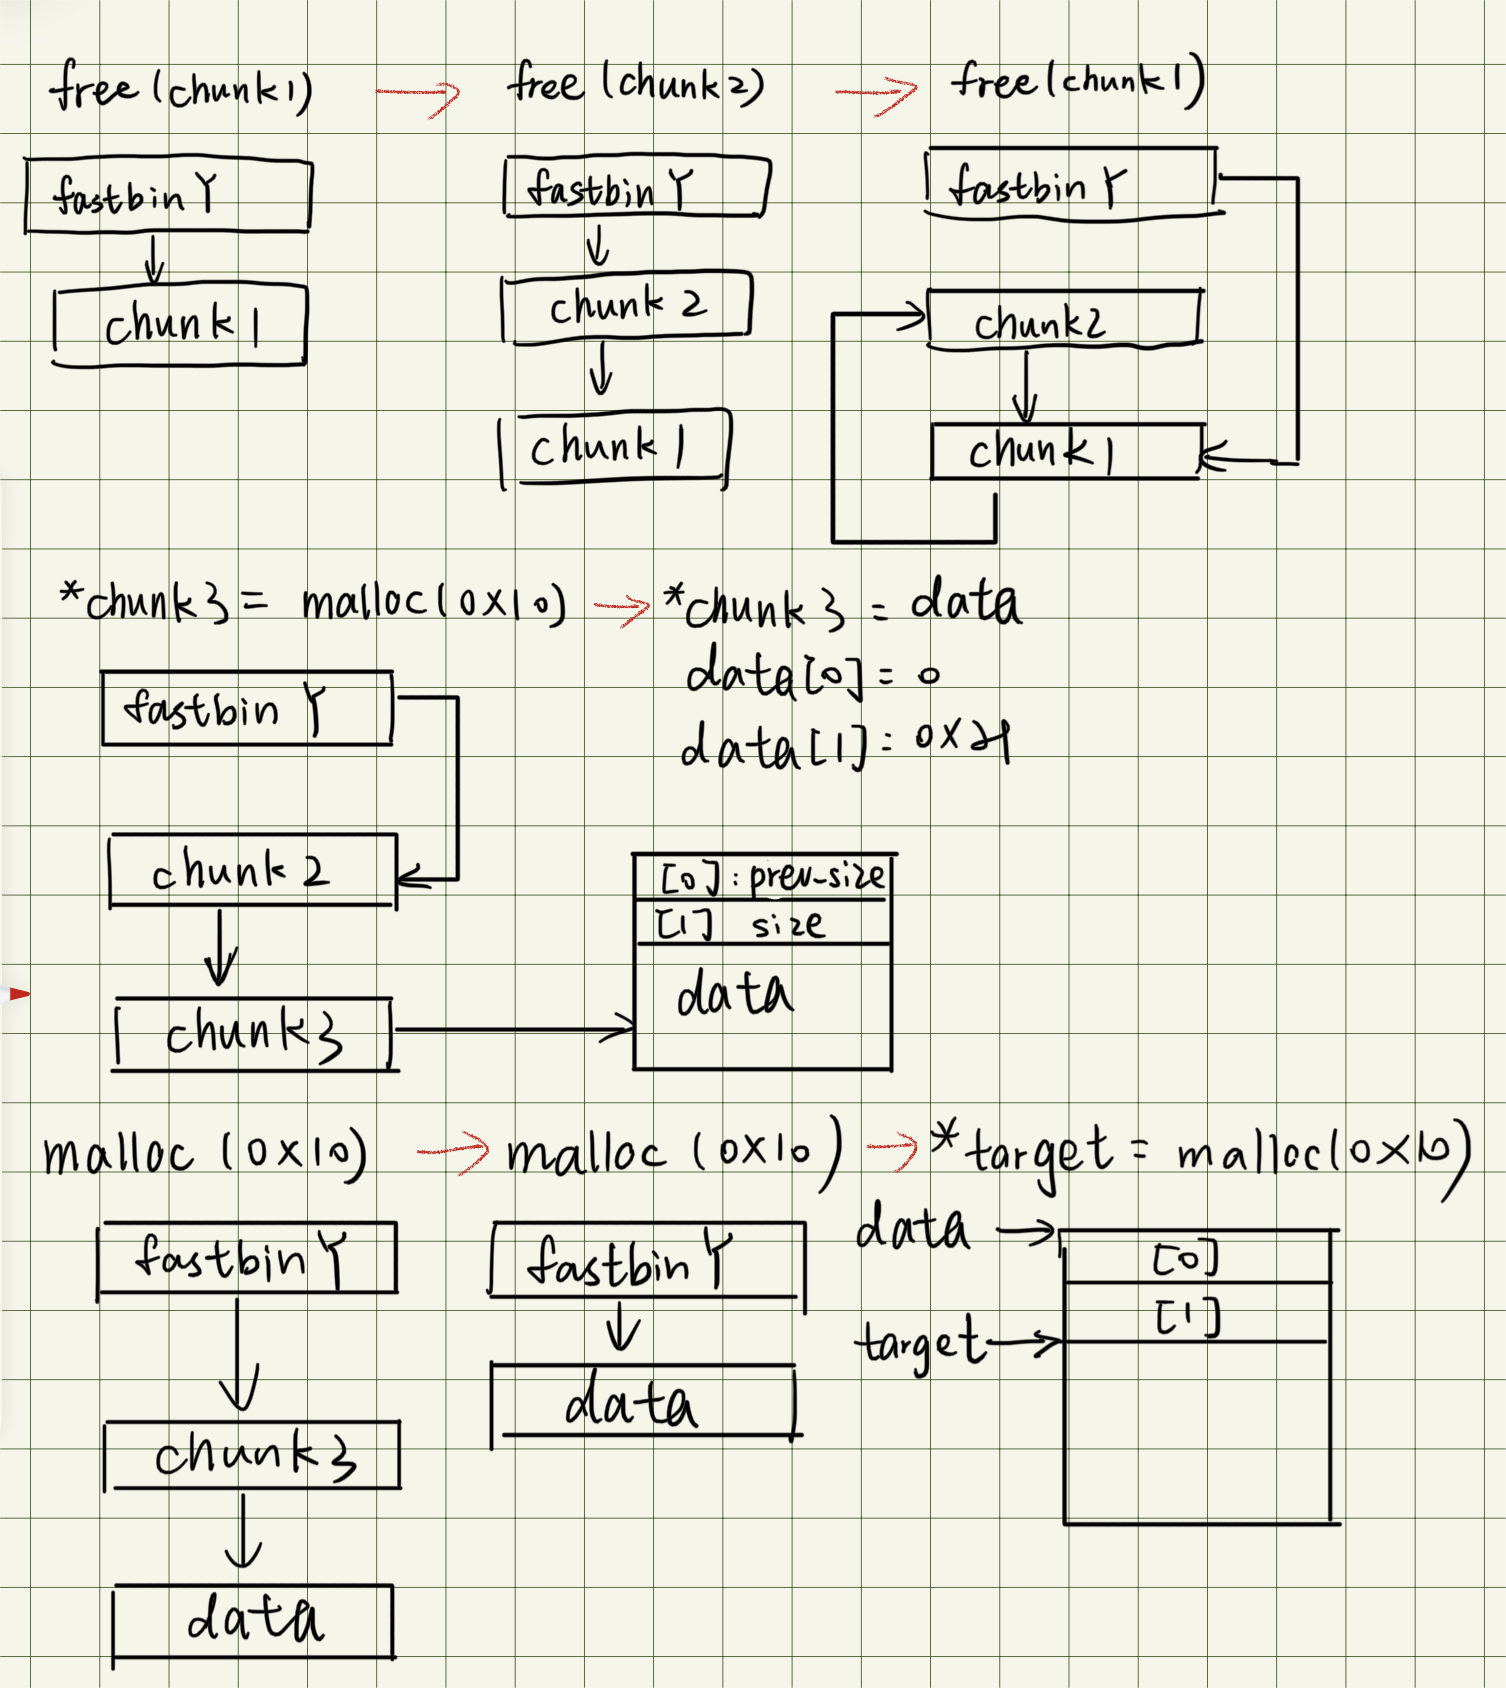 free(chunk1) → free(chunk2) → free(chunk1)
fastbinY fastbinY fastbinY
chunk1 chunk2 chunk2
chunk1 chunk1
*chunk3 = malloc(0x10) → *chunk3 = data
data[0] = 0
data[1] = 0x21
fastbinY
chunk2
chunk3
[0] : prev_size
[1] size
data
malloc(0x10) → malloc(0x10) → *target = malloc(0x10)
fastbinY
chunk3
data
fastbinY
data
data → [0]
[1]
target →